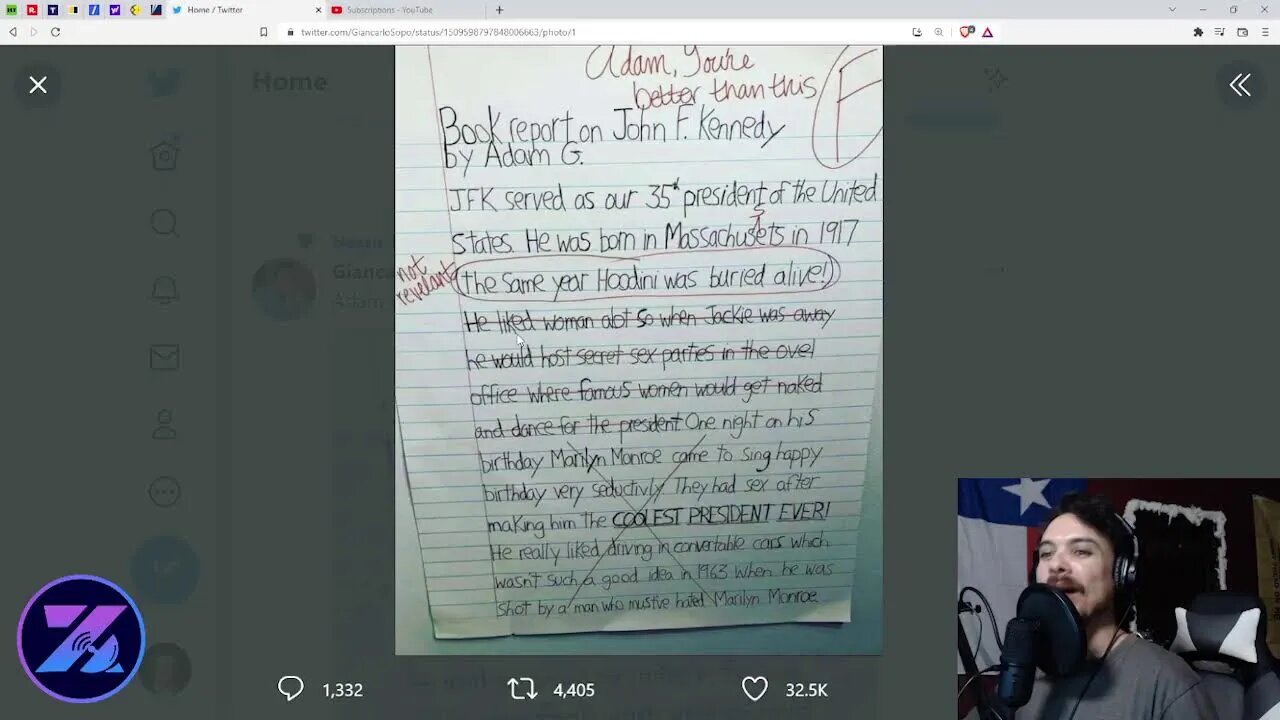 Home / Twitter
Subscriptions - YouTube
twitter.com/GiancarloSopo/status/1509598797848006663/photo/1
Home
Adam, You're
better than this
F
Book report on John F. Kennedy
by Adam G.
JFK served as our 35th president of the United
States. He was born in Massachusets in 1917
not
revelant
(the same year Hoodini was buried alive!)
He liked woman alot so when Jackie was away
he would host secret sex parties in the ovel
office where famous women would get naked
and dance for the president One night on his
birthday Marilyn Monroe came to sing happy
birthday very seductivly They had sex after
making him the COOLEST PRESIDENT EVER!
He really liked driving in convertable cars which
wasn't such a good idea in 1963 when he was
shot by a man who mustve hated Marilyn Monroe
1,332
4,405
32.5K